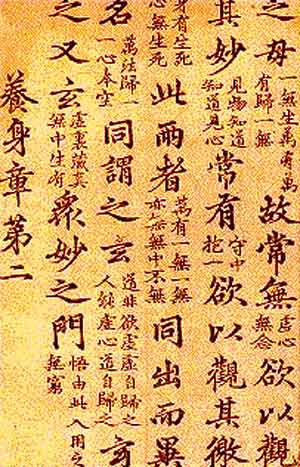 之母一無生萬有萬有歸一無故常無虛心無念欲以觀
其妙見物知道知道見心常有守中抱一欲以觀其徼
身有生死心無生死此兩者萬有一無一無亦無無中不無同出而異
名萬法歸一一心本空同謂之玄道非欲虛虛自歸之人能虛心道自歸之玄
之又玄虛裏藏真無中生有衆妙之門悟由此入用之無窮
養身章第二